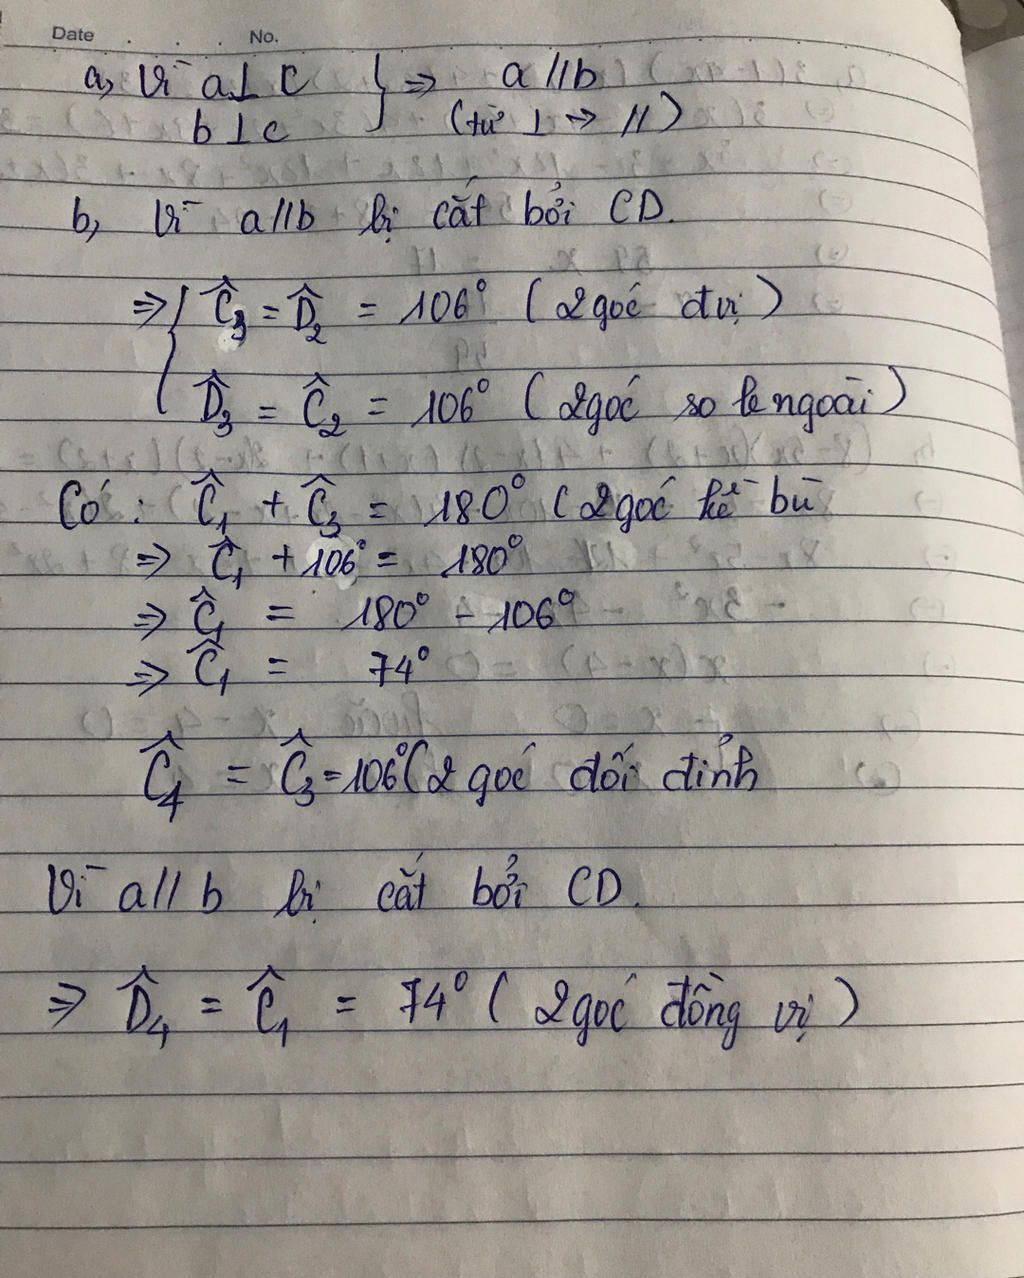 Date . . . No.
a, Vì a⊥c } ⇒ a//b
b⊥c (từ ⊥ → //)
b, Vì a//b bị cắt bởi CD.
⇒ { Ĉ₃ = D̂₂ = 106° (2 góc đ vị)
D̂₃ = Ĉ₂ = 106° (2 góc so le ngoài)
Có: Ĉ₁ + Ĉ₃ = 180° (2 góc kề bù
⇒ Ĉ₁ + 106° = 180°
⇒ Ĉ₁ = 180° - 106°
⇒ Ĉ₁ = 74°
Ĉ₄ = Ĉ₃ = 106° (2 góc đối đỉnh
Vì a//b bị cắt bởi CD.
⇒ D̂₄ = Ĉ₁ = 74° (2 góc đồng vị)